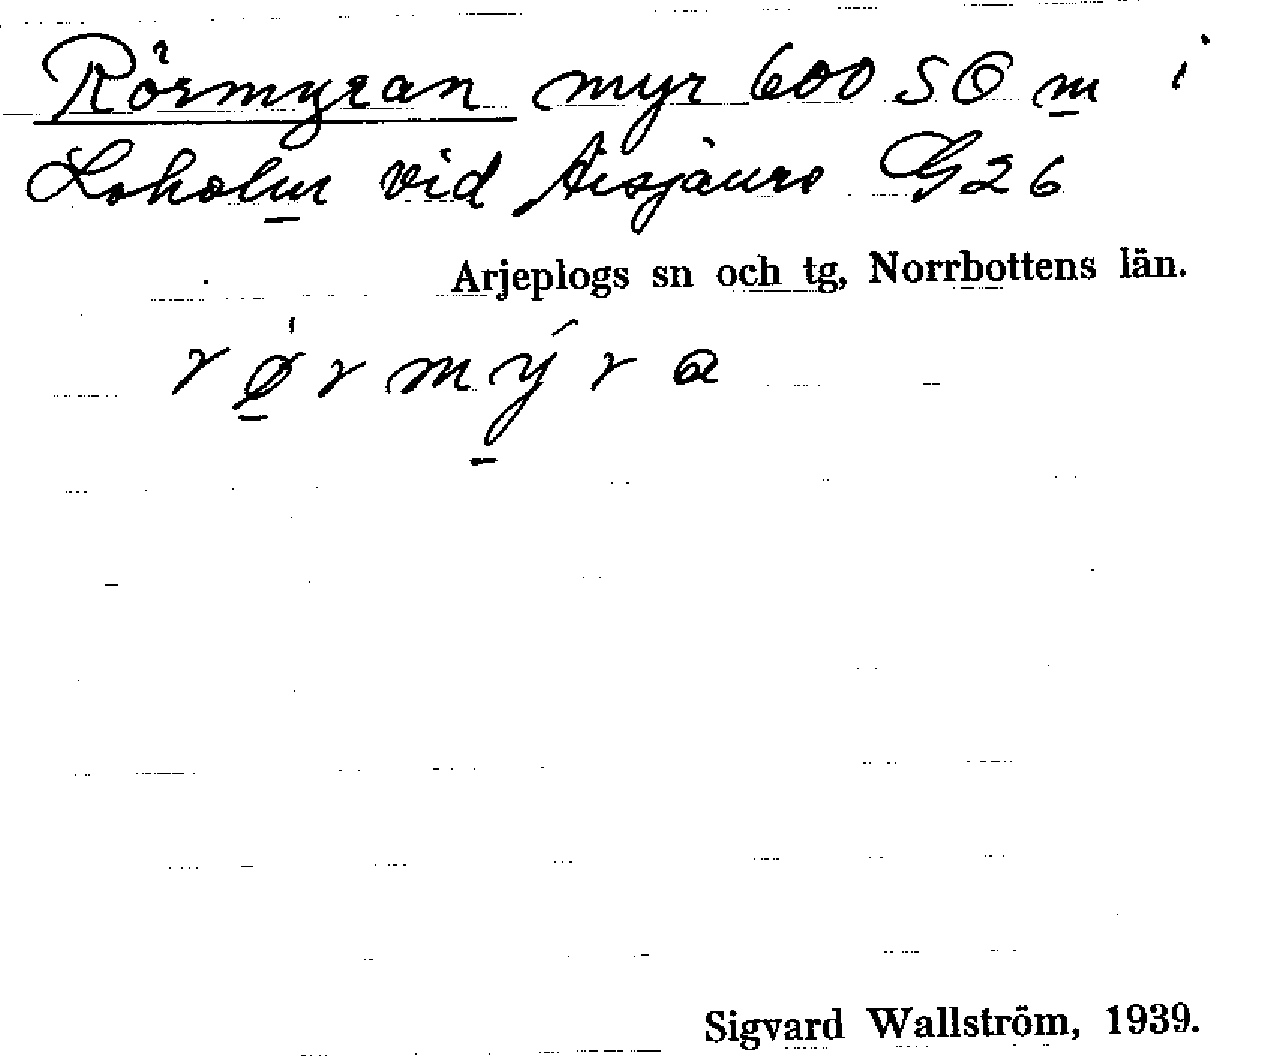 Rörmyran myr 600 SO m i
Loholm vid Aisjaure G26
Arjeplogs sn och tg, Norrbottens län.
rø̱rmý̱ra
Sigvard Wallström, 1939.